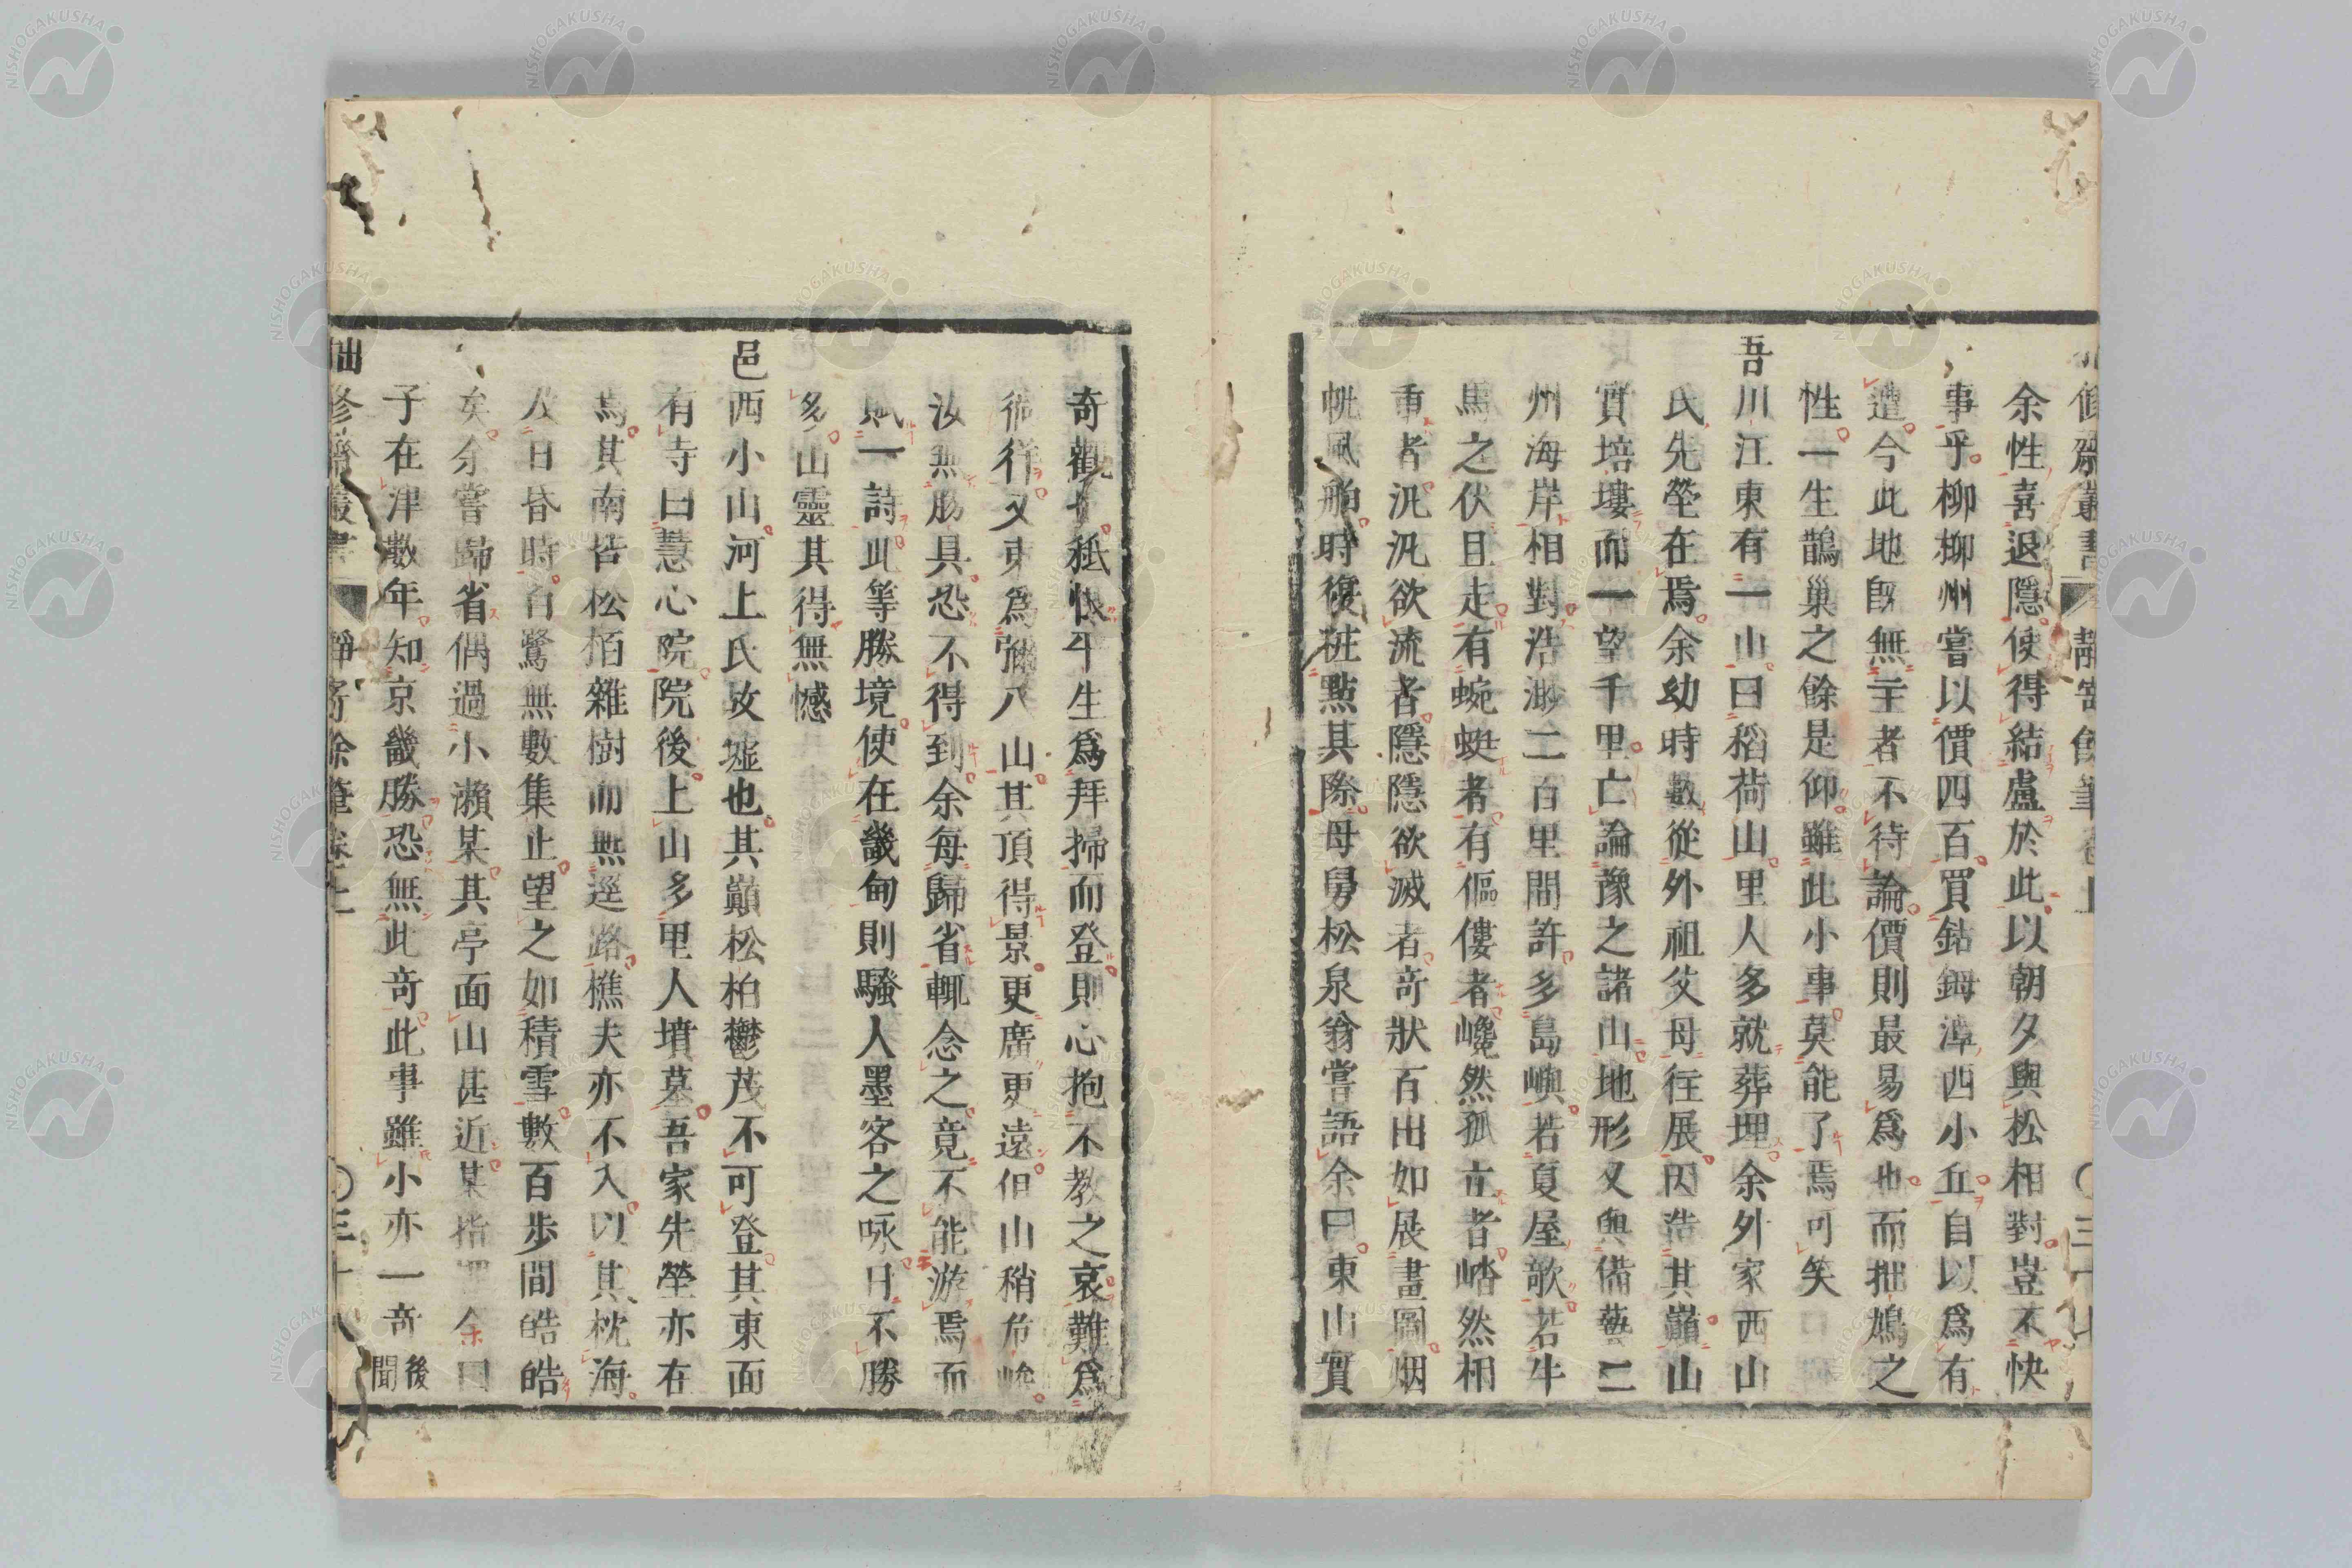 余性喜退隱使得結盧於此以朝夕與松相對豈不快
事乎柳柳州嘗以價四百買鈷鉧潭西小丘自以爲有
遭今此地既無主者不待論價則最易爲也而拙鳩之
性一生鵲巢之餘是仰雖此小事莫能了焉可笑
吾川江東有一山曰稻荷山里人多就葬埋余外家西山
氏先塋在焉余幼時數從外祖父母徃展因浩其巔山
實培塿而一望千里亡論豫之諸山地形又與備藝二
州海岸相對浩渺二百里間許多島嶼若夏屋歌若牛
馬之伏且走有蜿蜒者有傴僂者巉然孤立者峈然相
重者汎汎欲流者隱隱欲滅者奇狀百出如展畫圖烟
帆風舶時復粧點其際母舅松泉翁嘗語余曰東山實
奇觀也秪恨平生爲拜掃而登則心抱不教之哀難爲
徜徉又東爲彌八山其頂得景更廣更遠但山稍危峻
汝無勝具恐不得到余每歸省輒念之竟不能游焉而
賦一詩此等勝境使在畿甸則騷人墨客之咏日不勝
多山靈其得無憾
邑西小山河上氏故墟也其巔松柏鬱茂不可登其東面
有寺曰慧心院院後上山多里人墳墓吾家先塋亦在
焉其南皆松栢雜樹而無逕路樵夫亦不入以其枕海
人日昏時白鷺無數集止望之如積雪數百步間皓皓
矣余嘗歸省偶過小瀨某其亭面山甚近某指 余曰
子在津數年知京畿勝恐無此奇此事雖小亦一奇後聞
拙修齋叢書 靜寄余筆卷上 〇三十八